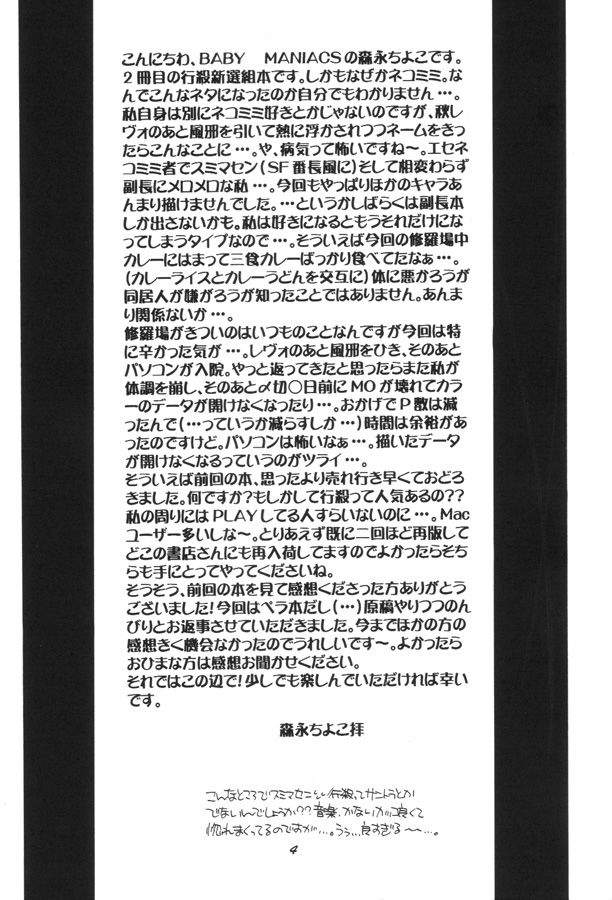 こんにちわ、BABY MANIACSの森永ちよこです。
2冊目の行殺新選組本です。しかもなぜかネコミミ。な
んでこんなネタになったのか自分でもわかりません…。
私自身は別にネコミミ好きとかじゃないのですが、秋レ
ヴォのあと風邪を引いて熱に浮かされつつネームをきっ
たらこんなことに…。や、病気って怖いですね〜。エセネ
コミミ者でスミマセン(SF番長風に)そして相変わらず
副長にメロメロな私…。今回もやっぱりほかのキャラあ
んまり描けませんでした。…というかしばらくは副長本
しか出さないかも。私は好きになるともうそれだけにな
ってしまうタイプなので…。そういえば今回の修羅場中
カレーにはまって三食カレーばっかり食べてたなぁ…。
(カレーライスとカレーうどんを交互に)体に悪かろうが
同居人が嫌がろうが知ったことではありません。あんま
り関係ないか…。
修羅場がきついのはいつものことなんですが今回は特
に辛かった気が…。レヴォのあと風邪をひき、そのあと
パソコンが入院。やっと返ってきたと思ったらまた私が
体調を崩し、そのあと〆切〇日前にMOが壊れてカラ
ーのデータが開けなくなったり…。おかげでP数は減
ったんで(…っていうか減らすしか…)時間は余裕があ
ったのですけど。パソコンは怖いなぁ…。描いたデータ
が開けなくなるっていうのがツライ…。
そういえば前回の本、思ったより売れ行き早くておどろ
きました。何ですか?もしかして行殺って人気あるの??
私の周りにはPLAYしてる人すらいないのに…。Mac
ユーザー多いしな〜。とりあえず既に二回ほど再版して
どこの書店さんにも再入荷してますのでよかったらそち
らも手にとってやってくださいね。
そうそう、前回の本を見て感想くださった方ありがとう
ございました!今回はペラ本だし(…)原稿やりつつのん
びりとお返事させていただきました。今までほかの方の
感想きく機会なかったのでうれしいです〜。よかったら
おひまな方は感想お聞かせください。
それではこの辺で!少しでも楽しんでいただければ幸い
です。
森永ちよこ拝
こんなところでスミマセンが行殺ってサントラとか
でないんでしょうか??音楽、かなりカッコ良くて
惚れまくってるのですが…。うぅ…良すぎる〜…。
4